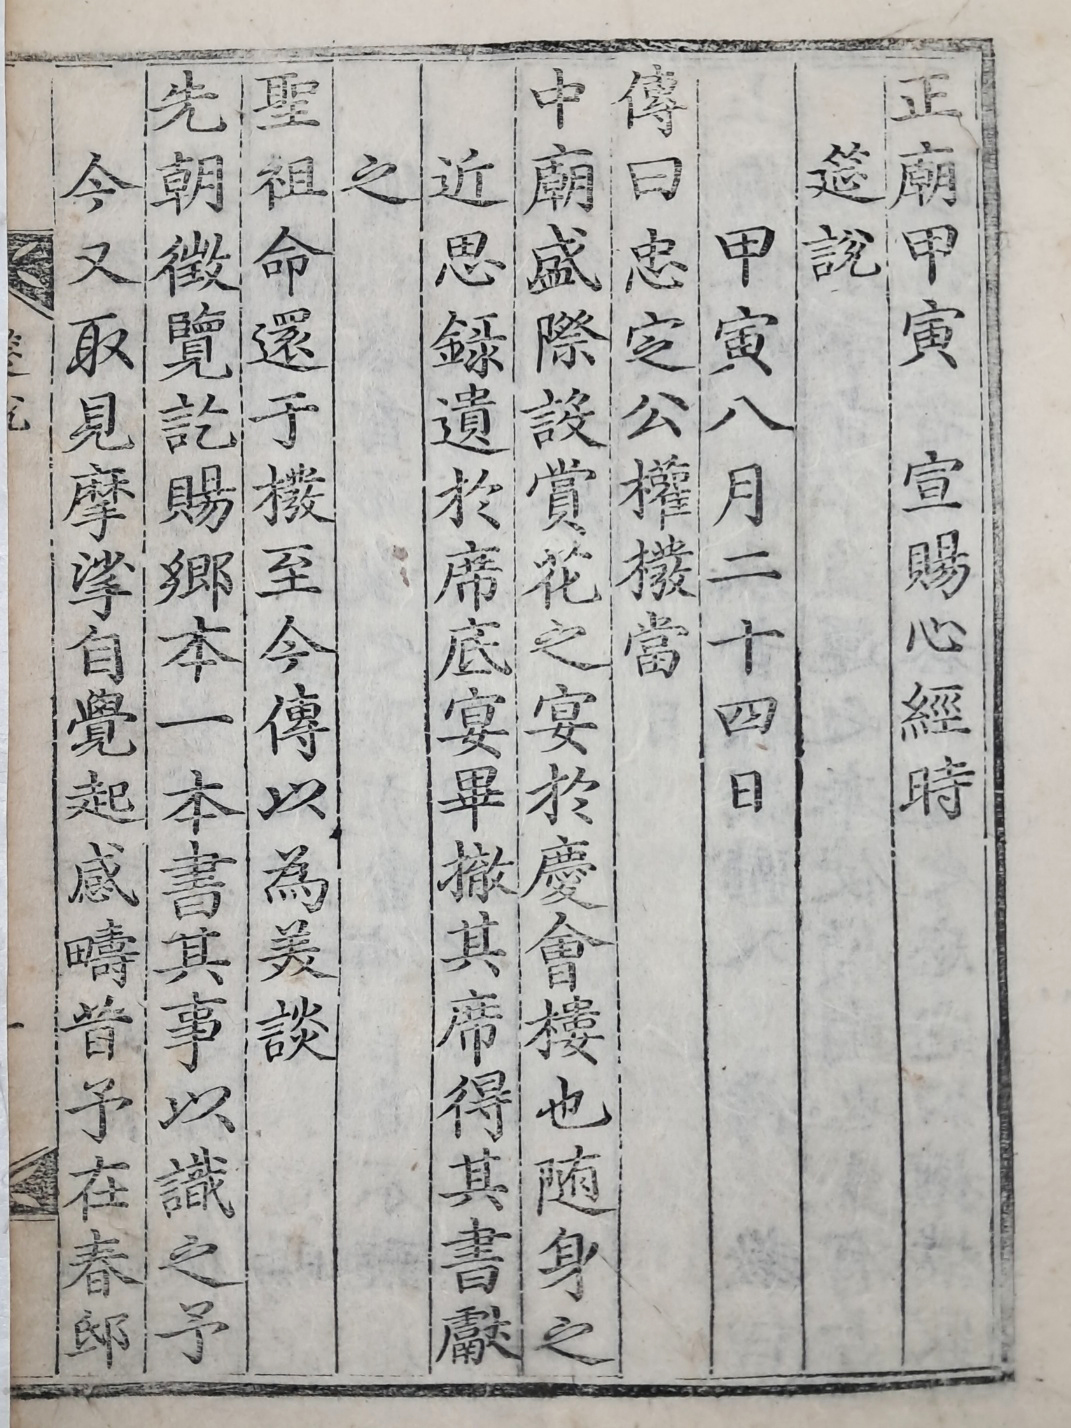 正廟甲寅 宣賜心經時
筵說
甲寅八月二十四日
傳曰忠定公權橃當
中廟盛際設賞花之宴於慶會樓也随身之
近思録遺於席底宴畢撤其席得其書獻
之
聖祖命還于橃至今傳以為美談
先朝徵覽訖賜鄉本一本書其事以識之予
今又取見摩挲自覺起感疇昔予在春邸
筵說
一